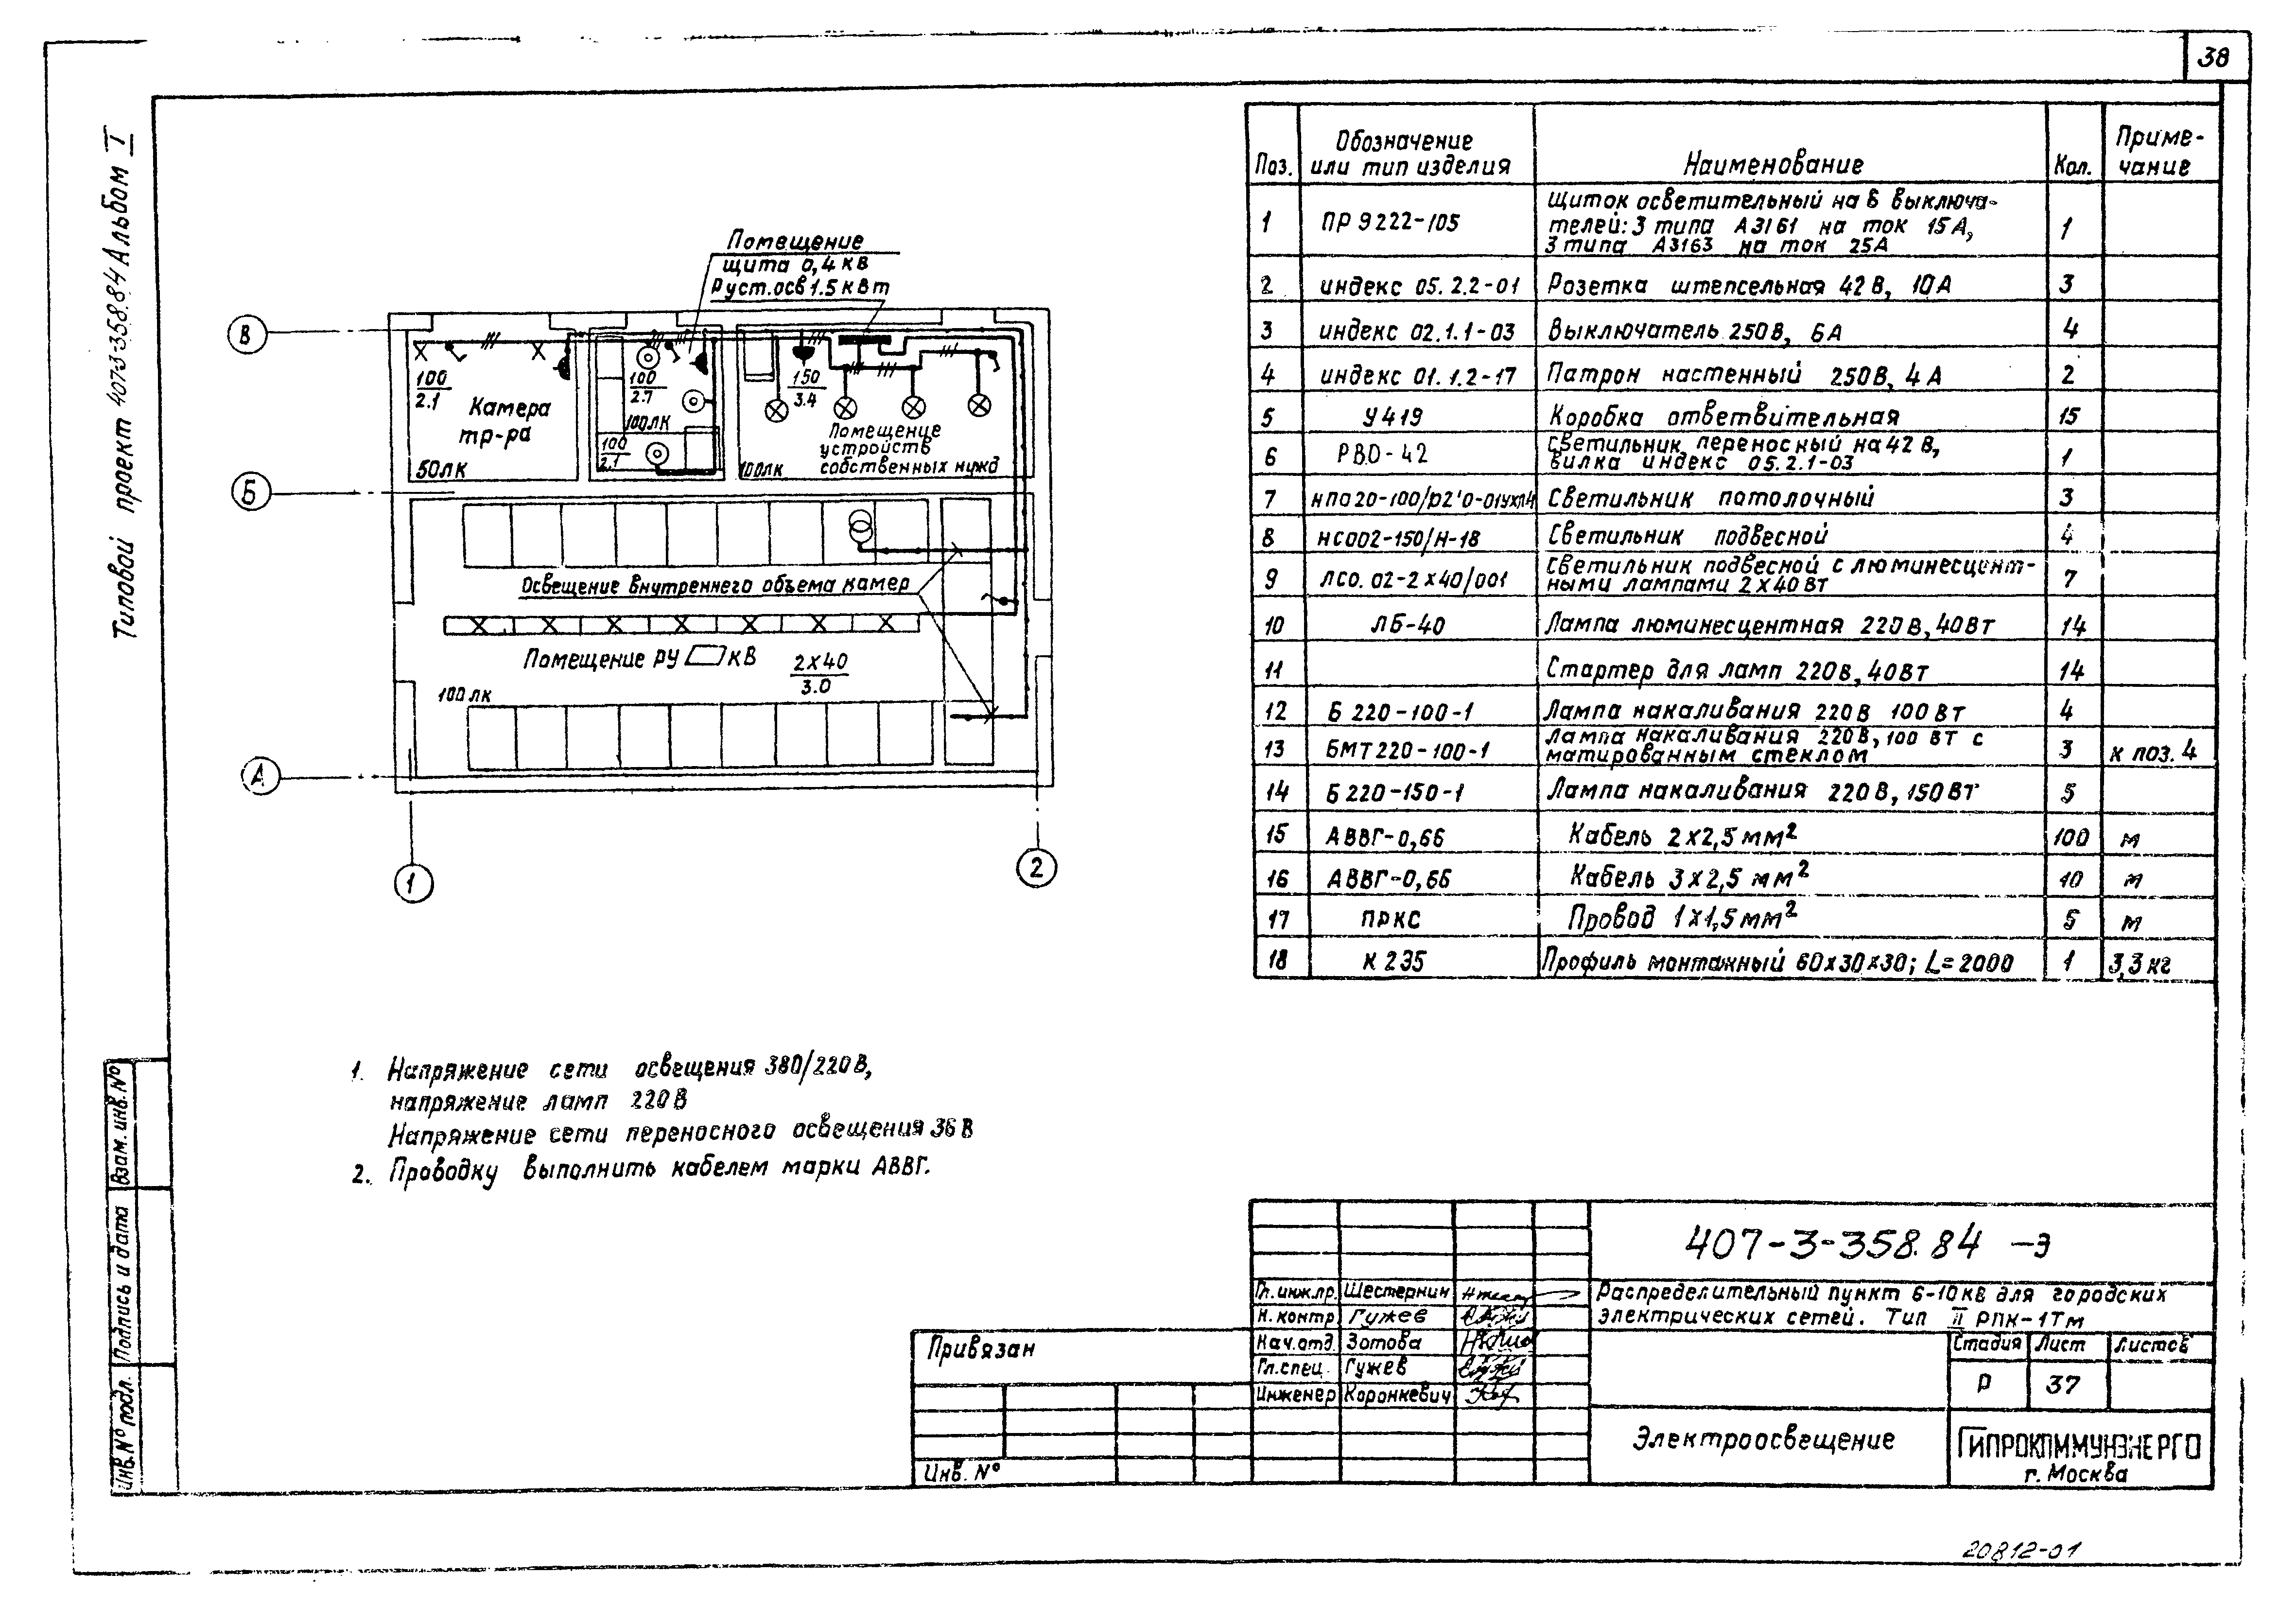 38
Типовой проект 407-3-358.84 Альбом I
Помещение
щита 0,4 кв
Руст.осв 1.5 квт
В
Б
А
1
2
100
2.1
Камера
тр-ра
50лк
100
2.7
100лк
100
2.1
150
3.4
Помещение
устройств
собственных нужд
100лк
Освещение внутреннего объема камер
Помещение РУ кв
2х40
3.0
100 лк
Поз. Обозначение или тип изделия Наименование Кол. Приме-чание
1 ПР 9222-105 Щиток осветительный на 6 выключа-
телей: 3 типа А3161 на ток 15А, 1
3 типа А3163 на ток 25А
2 индекс 05.2.2-01 Розетка штепсельная 42В, 10А 3
3 индекс 02.1.1-03 Выключатель 250В, 6А 4
4 индекс 01.1.2-17 Патрон настенный 250В, 4А 2
5 У419 Коробка ответвительная 15
6 РВО-42 Светильник переносный на 42 В, 1
вилка индекс 05.2.1-03
7 нпо20-100/р2'0-01УХЛ4 Светильник потолочный 3
8 НСО02-150/Н-18 Светильник подвесной 4
9 ЛСО.02-2х40/001 Светильник подвесной с люминесцент- 7
ными лампами 2х40Вт
10 ЛБ-40 Лампа люминесцентная 220В, 40Вт 14
11 Стартер для ламп 220В, 40Вт 14
12 Б 220-100-1 Лампа накаливания 220В 100Вт 4
13 БМТ220-100-1 Лампа накаливания 220В, 100 Вт с 3 к поз. 4
матированным стеклом
14 Б220-150-1 Лампа накаливания 220В, 150Вт 5
15 АВВГ-0,66 Кабель 2х2,5мм² 100 м
16 АВВГ-0,66 Кабель 3х2,5мм² 10 м
17 ПРКС Провод 1х1,5мм² 5 м
18 К235 Профиль монтажный 60х30х30; L=2000 1 3,3кг
1. Напряжение сети освещения 380/220В,
напряжение ламп 220В
Напряжение сети переносного освещения 36В
2. Проводку выполнить кабелем марки АВВГ.
Взам. инв.№
Подпись и дата
Инв.№ подл.
407-3-358.84 -Э
Гл.инж.пр. Шестернин
Н.контр Гужев
Нач.отд. Зотова
Гл.спец. Гужев
Инженер Коронкевич
Распределительный пункт 6-10кв для городских
электрических сетей. Тип II РПК-1Тм
Стадия Лист Листов
Р 37
Привязан
Инв. №
Электроосвещение
ГИПРОКОММУНЭНЕРГО
г. Москва
20812-01